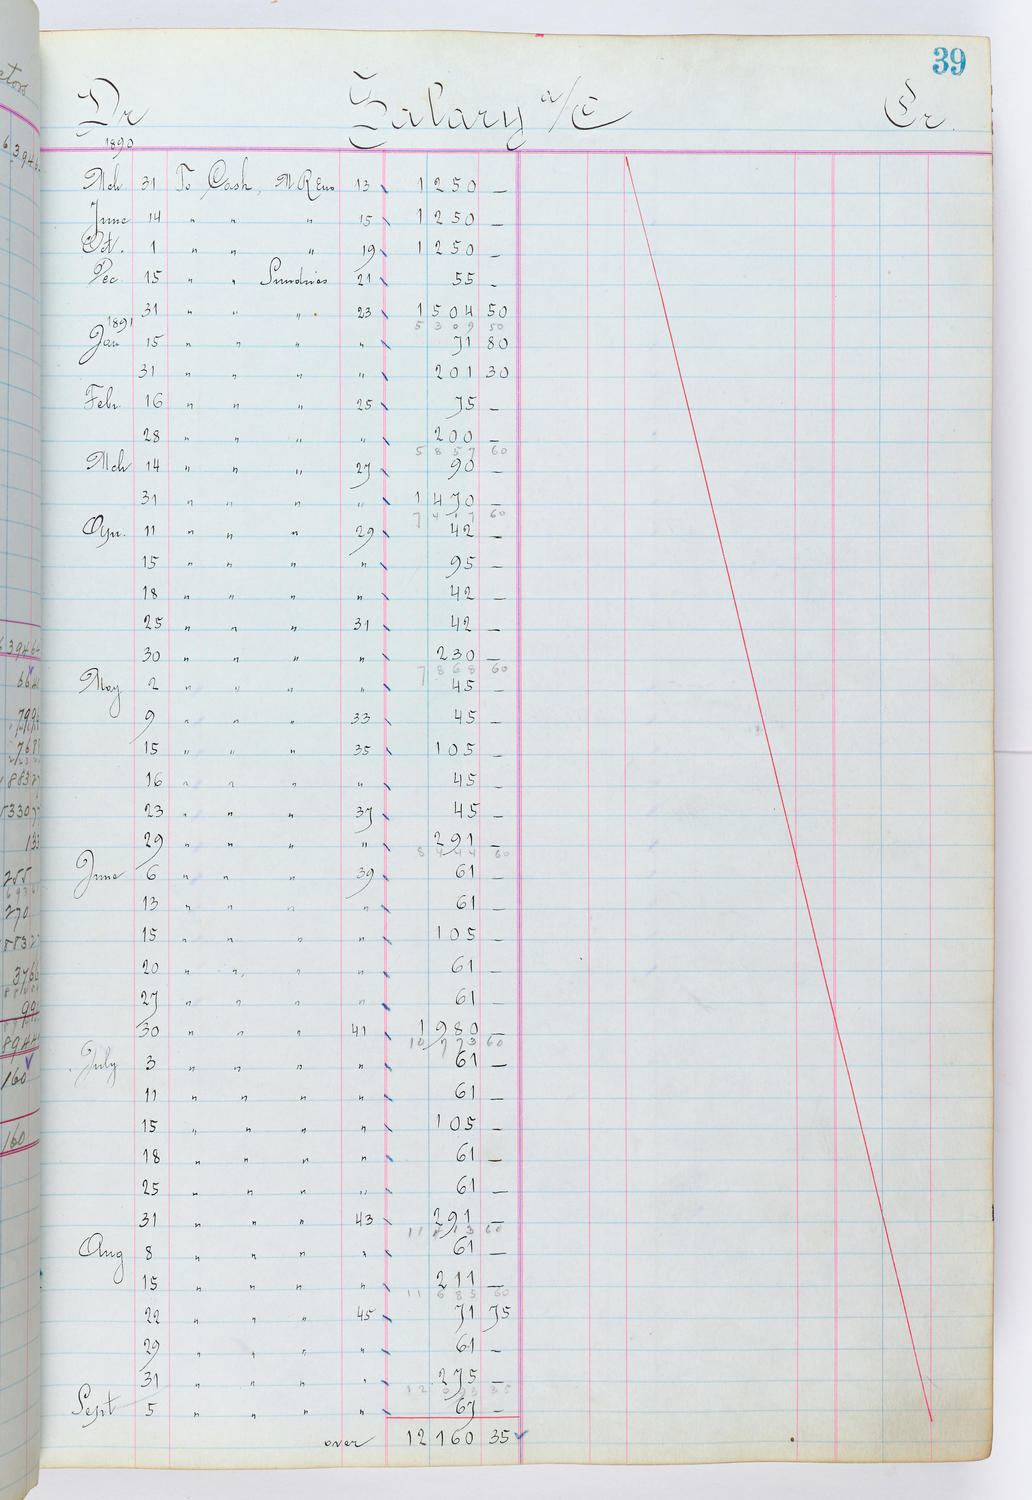 39
Dr Salary a/c Cr.
1890
Mch. 31 To Cash, M. Reno 13 1250 —
June 14 " " " 15 1250 —
Oct. 1 " " " 19 1250 —
Dec 15 " " Sundries 21 55 -
31 " " " 23 1504 50
5309 50
1891
Jan 15 " " " " 71 80
31 " " " " 201 30
Febr. 16 " " " 25 75 —
28 " " " " 200 —
5857 60
Mch 14 " " " 27 90 —
31 " " " " 1470 —
7417 60
Apr. 11 " " " 29 42 —
15 " " " " 95 —
18 " " " " 42 —
25 " " " 31 42 —
30 " " " " 230 —
7868 60
May 2 " " " " 45 —
9 " " " 33 45 —
15 " " " 35 105 —
16 " " " " 45 —
23 " " " 37 45 —
29 " " " " 291 —
8444 60
June 6 " " " 39 61 —
13 " " " " 61 —
15 " " " " 105 —
20 " " " " 61 —
27 " " " " 61 —
30 " " " 41 1980 —
10773 60
July 3 " " " " 61 —
11 " " " " 61 —
15 " " " " 105 —
18 " " " " 61 —
25 " " " " 61 —
31 " " " 43 291 —
11413 60
Aug 8 " " " " 61 —
15 " " " " 211 —
11685 60
22 " " " 45 71 75
29 " " " " 61 —
31 " " " " 275 —
12093 35
Sept 5 " " " " 67 —
over 12160 35